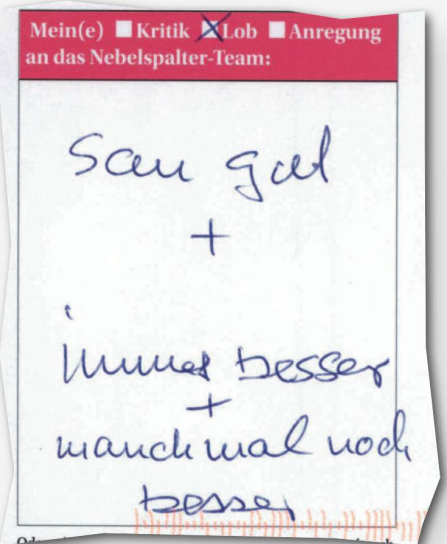 Mein(e) Kritik Lob Anregung
an das Nebelspalter-Team:
Sau gut
+
immer besser
+
manchmal noch
besser